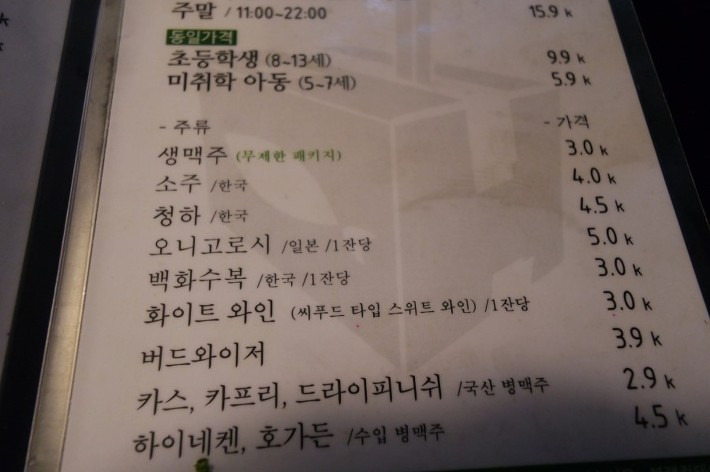 주말 / 11:00~22:00 15.9 k
동일가격
초등학생 (8~13세) 9.9 k
미취학 아동 (5~7세) 5.9 k
- 주류 - 가격
생맥주 (무제한 패키지) 3.0 k
소주 /한국 4.0 k
청하 /한국 4.5 k
오니고로시 /일본 /1잔당 5.0 k
백화수복 /한국 /1잔당 3.0 k
화이트 와인 (씨푸드 타입 스위트 와인) /1잔당 3.0 k
버드와이저 3.9 k
카스, 카프리, 드라이피니쉬 /국산 병맥주 2.9 k
하이네켄, 호가든 /수입 병맥주 4.5 k